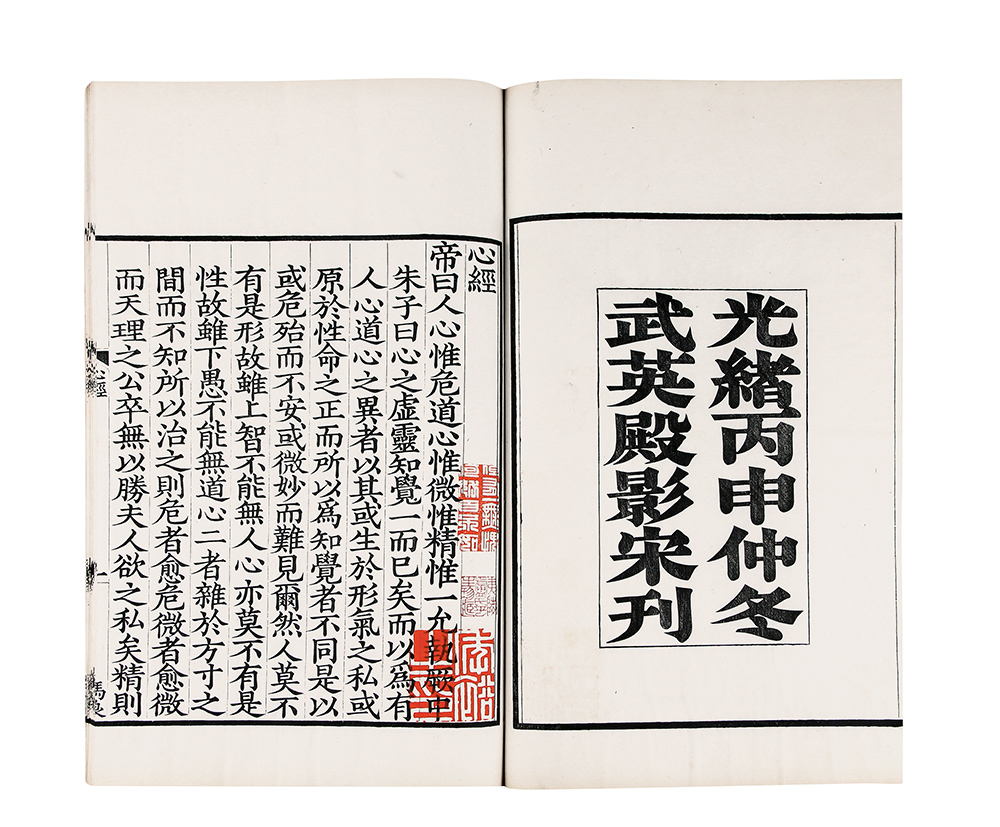 光緒丙申仲冬
武英殿影宋刊
心經
帝曰人心惟危道心惟微惟精惟一允執厥中
朱子曰心之虛靈知覺一而已矣而以爲有
人心道心之異者以其或生於形氣之私或
原於性命之正而所以爲知覺者不同是以
或危殆而不安或微妙而難見爾然人莫不
有是形故雖上智不能無人心亦莫不有是
性故雖下愚不能無道心二者雜於方寸之
間而不知所以治之則危者愈危微者愈微
而天理之公卒無以勝夫人欲之私矣精則
心經
一